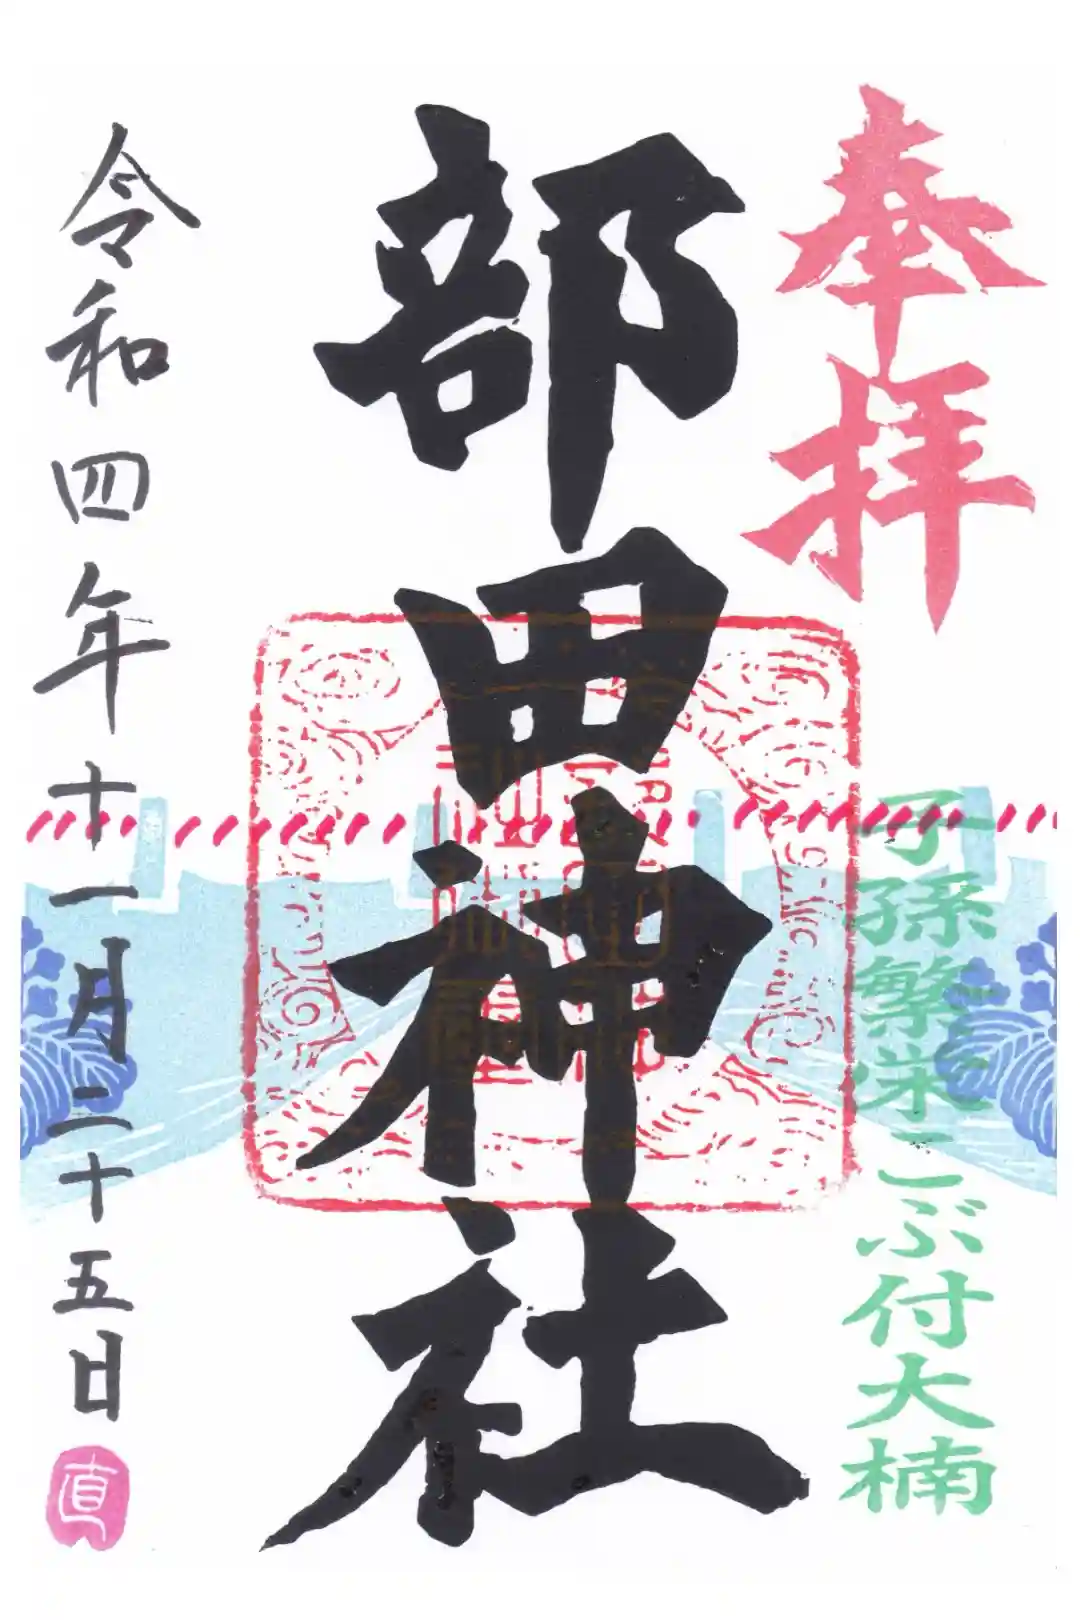 奉拝
子孫繁栄こぶ付大楠
部田神社
令和四年十一月二十五日
直